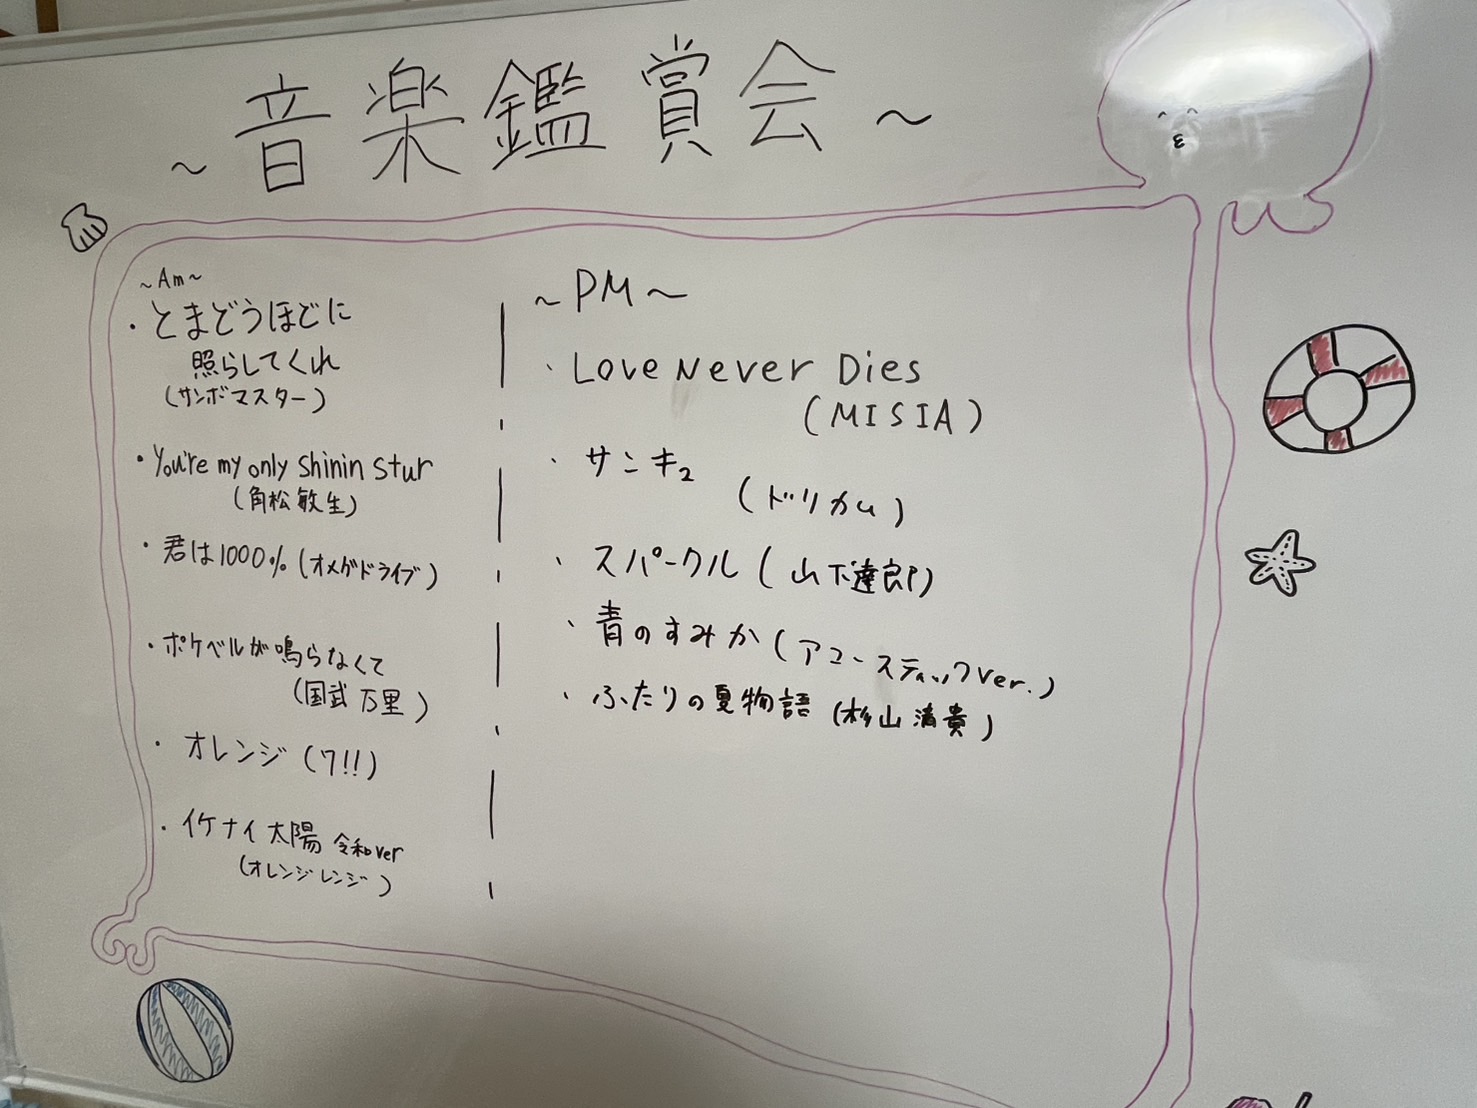 ～音楽鑑賞会～
～Am～
・とまどうほどに
照らしてくれ
(サンボマスター)
・You're my only shinin stur
(角松敏生)
・君は1000%(オメガドライブ)
・ポケベルが鳴らなくて
(国武万里)
・オレンジ(7!!)
・イケナイ太陽 令和ver
(オレンジレンジ)
～PM～
・Love Never Dies
(MISIA)
・サンキュ
(ドリカム)
・スパークル(山下達郎)
・青のすみか(アコースティックver.)
・ふたりの夏物語(杉山清貴)